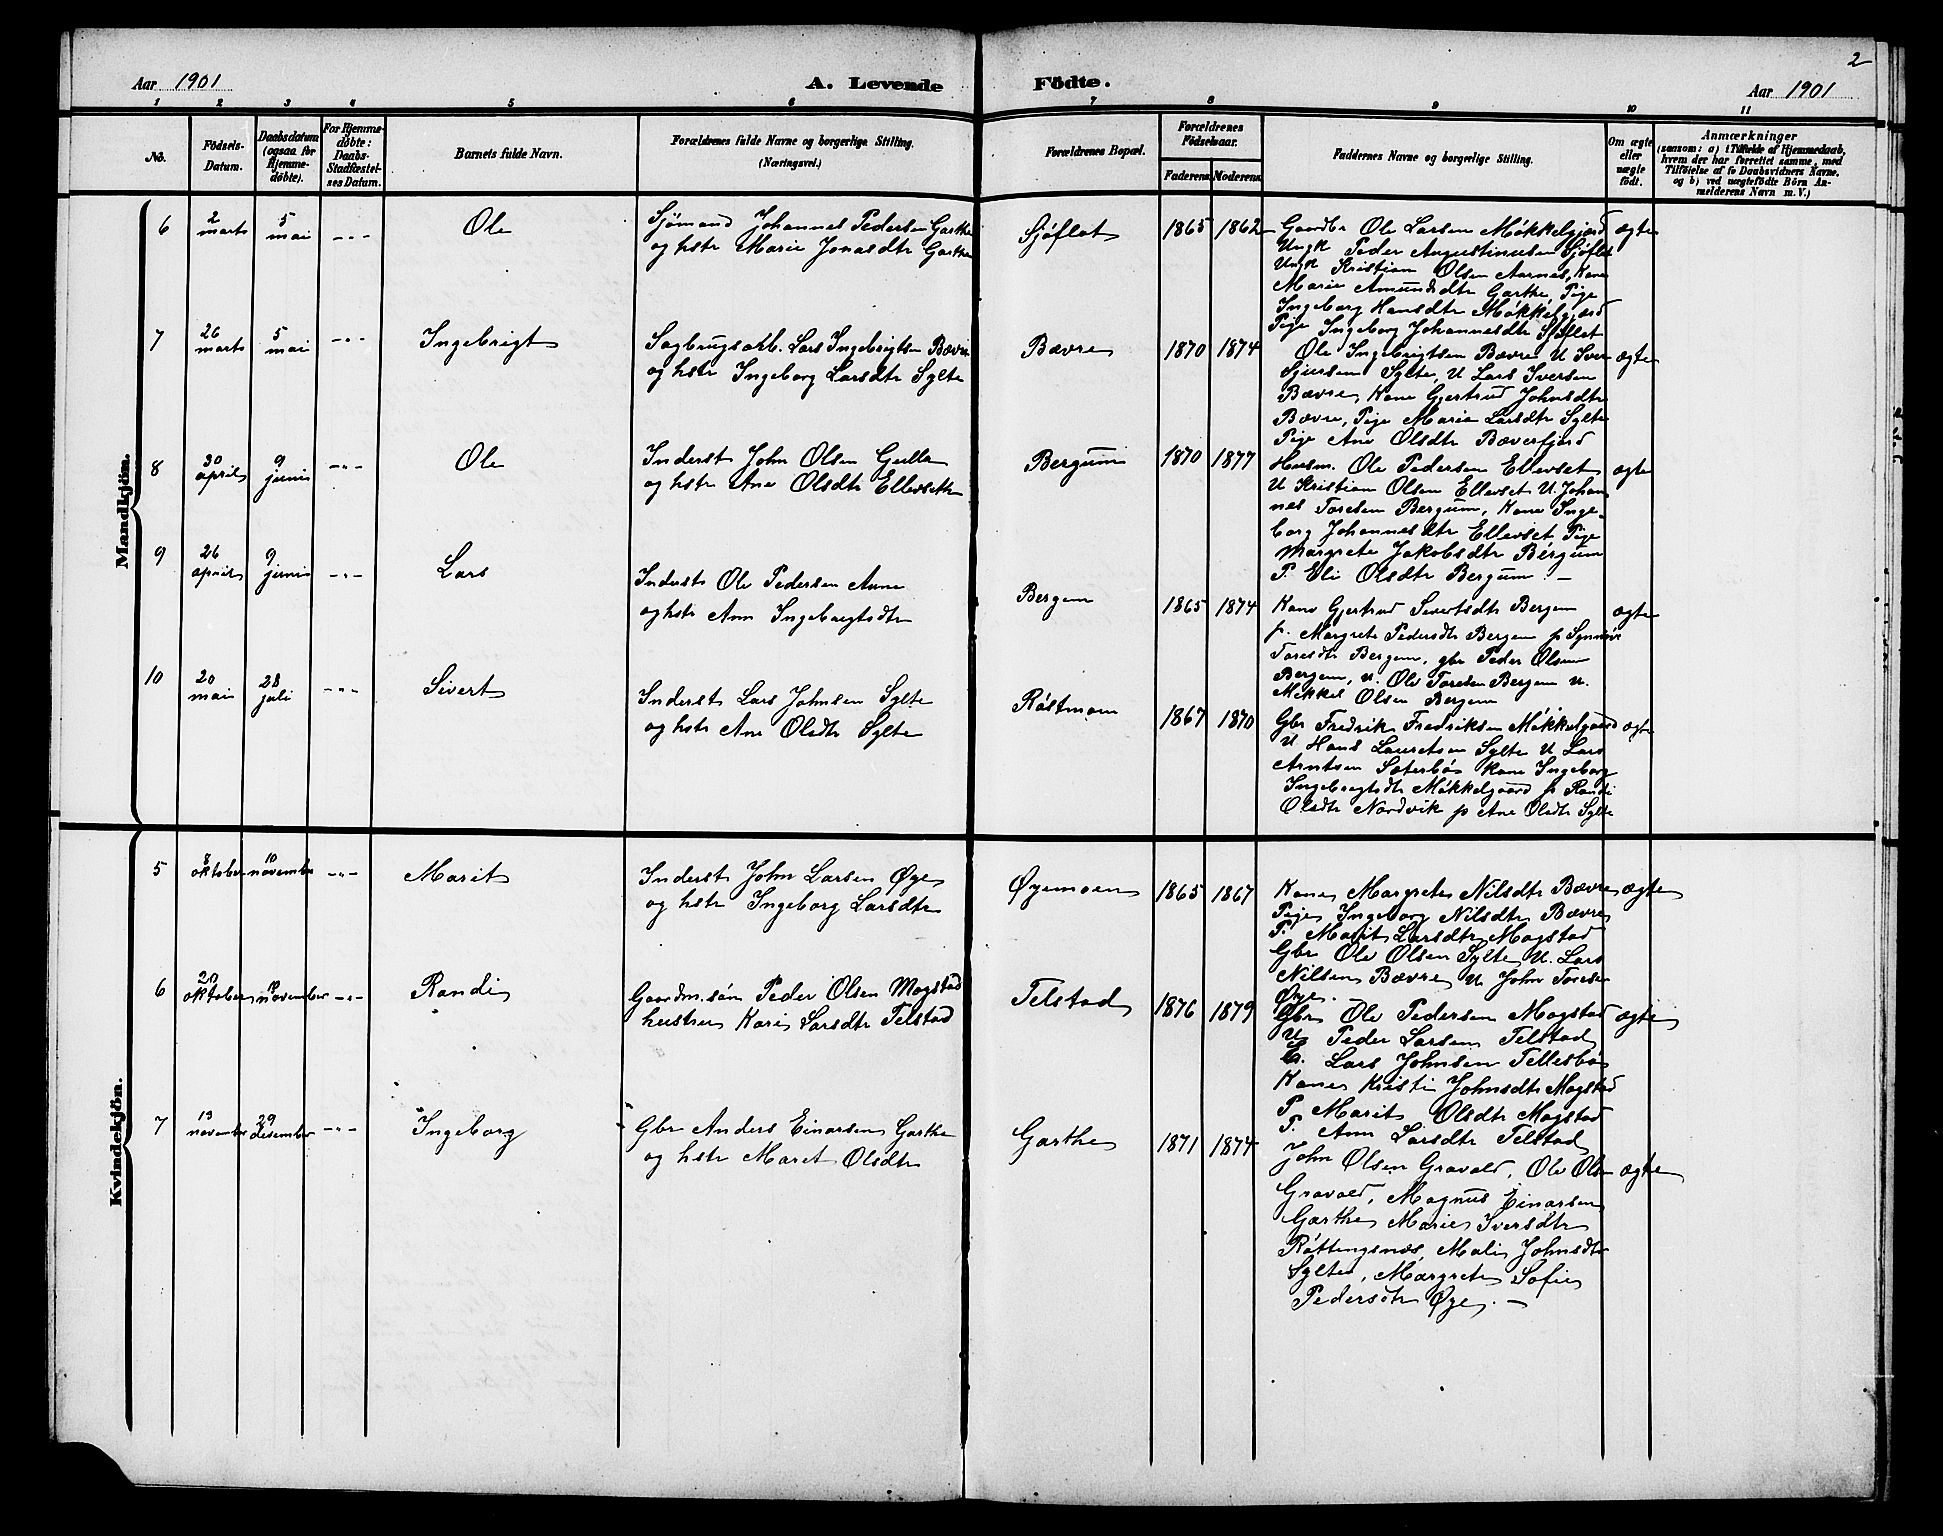 2
Aar 1901
A. Levende Födte.
Aar 1901
1 2 3 4 5 6 7 8 9 10 11
No.
Födsels-Datum.
Daabsdatum (ogsaa for Hjemme-döbte).
For Hjemme-döbte: Daabs-Stadfæstel-ses Datum.
Barnets fulde Navn.
Forældrenes fulde Navne og borgerlige Stilling.
(Næringsvei.)
Forældrenes Bopæl.
Forældrenes Födselsaar.
Faderens. Moderens.
Faddernes Navne og borgerlige Stilling.
Om ægte eller uægte födt.
Anmærkninger
(saasom: a) i Tilfælde af Hjemmedaab,
hvem der har forrettet samme, med
Tilföielse af to Daabsvidners Navne,
og b) ved uægtefödte Börn An-
melderens Navn m. V.)
Mandkjön.
6
2 marts
5 mai
-"-
Ole
Sjømand Johannes Pedersen Garthe
og hstr Marie Jonasdtr Garthe
Sjøflot
1865 1862
Gaardbr Ole Larsen Møkkelgjerd
Ungk Peder Augustinusen Sjøflot
Ungk Kristian Olsen Aarnes, Kone
Marie Amundsdtr Garthe, Pige
Ingeborg Hansdtr Møkkelgjerd
Pige Ingeborg Johannesdtr Sjøflot
ægte
7
26 marts
5 mai
-"-
Ingebrigt
Sagbrugsarb. Lars Ingebrigtsen Bævre
og hstr Ingeborg Larsdtr Sylte
Bævre
1870 1874
Ole Ingebrigtsen Bævre U Iver
Sjursen Sylte, U Lars Iversen
Bævre, Kone Gjertrud Johnsdtr
Bævre, Pige Marie Larsdtr Sylte
Pige Ane Olsdtr Bæverfjord
ægte
8
30 april
9 juni
-"-
Ole
Inderst John Olsen Gulla
og hstr Ane Olsdtr Ellevseth
Bergum
1870 1877
Husm. Ole Pedersen Ellevset
U Kristian Olsen Ellevset U. Johan
nes Toresen Bergum, Kone Inge-
borg Johannesdtr Ellevset Pige
Margrete Jakobsdtr Bergum
P. Eli Olsdtr Bergum. -
ægte
9
26 april
9 juni
-"-
Lars
Inderst Ole Pedersen Aune
og hstr Ann Ingebrigtsdtr
Bergem
1865 1874
Kone Gjertrud Sivertsdtr Bergem
p. Margrete Pedersdtr Bergem p Synnøve
Toresdtr Bergem, gbr Peder Olsen
Bergem, u. Ole Toresen Bergem u.
Mikkel Olsen Bergem
ægte
10
20 mai
28 juli
-"-
Sivert
Inderst Lars Johnsen Sylte
og hstr Ane Olsdtr Sylte
Røstmoen
1867 1870
Gbr Fredrik Fredriksen Møkkelgaard
U Hans Lauretsen Sylte U Lars
Arntsen Sæterbø Kone Ingeborg
Ingebrigtsdtr Møkkelgaard p Randi
Olsdtr Nordvik p Ane Olsdtr Sylte
ægte
Kvindekjön.
5
8 oktober
10 november
-"-
Marit
Inderst John Larsen Øye
og hstr Ingeborg Larsdtr
Øyemoen
1865 1867
Kone Margrete Nilsdtr Bævre
Pige Ingeborg Nilsdtr Bævre
P. Marit Larsdtr Mogstad
Gbr Ole Olsen Sylte U. Lars
Nilsen Bævre U John Toresen
Øye.
ægte
6
20 oktober
10 november
-"-
Randi
Gaardm.søn Peder Olsen Mogstad
hustru Kari Larsdtr Telstad
Telstad
1876 1879
Gbr Ole Pedersen Mogstad
U Peder Larsen Telstad
U. Lars Johnsen Tellesbø
Kone Kristi Johnsdtr Mogstad
P. Marit Olsdtr Mogstad
P. Ann Larsdtr Telstad
ægte
7
13 november
29 desember
-"-
Ingeborg
Gbr Anders Einarsen Garthe
og hstr Maret Olsdtr
Garthe
1871 1874
John Olsen Gravald, Ole Olsen
Gravald, Magnus Einarsen
Garthe Marie Iversdtr
Røttingsnæs, Mali Johnsdtr
Sylte, Margrete Sofie
Pedersdtr Øye. -
ægte